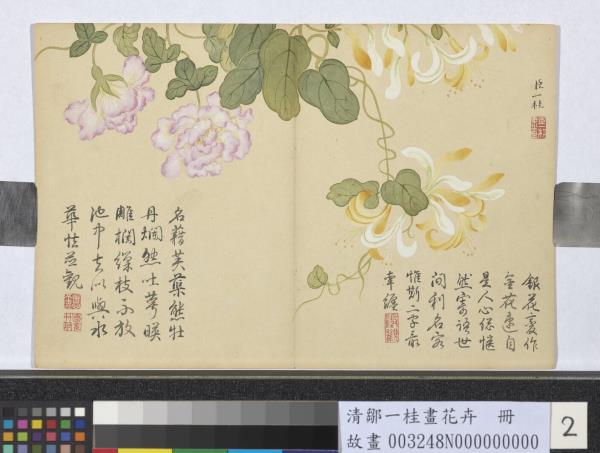 臣一桂
銀花變作
金花還自
是人心總愜
然寄語世
間利名客
惟斯二字最
牽纏
名藉芙蕖態牡
丹爛然吐萼暎
雕欄繅枝不放
池中去似與水
華怯並觀
清鄒一桂畫花卉 冊
故畫 003248N000000000
2